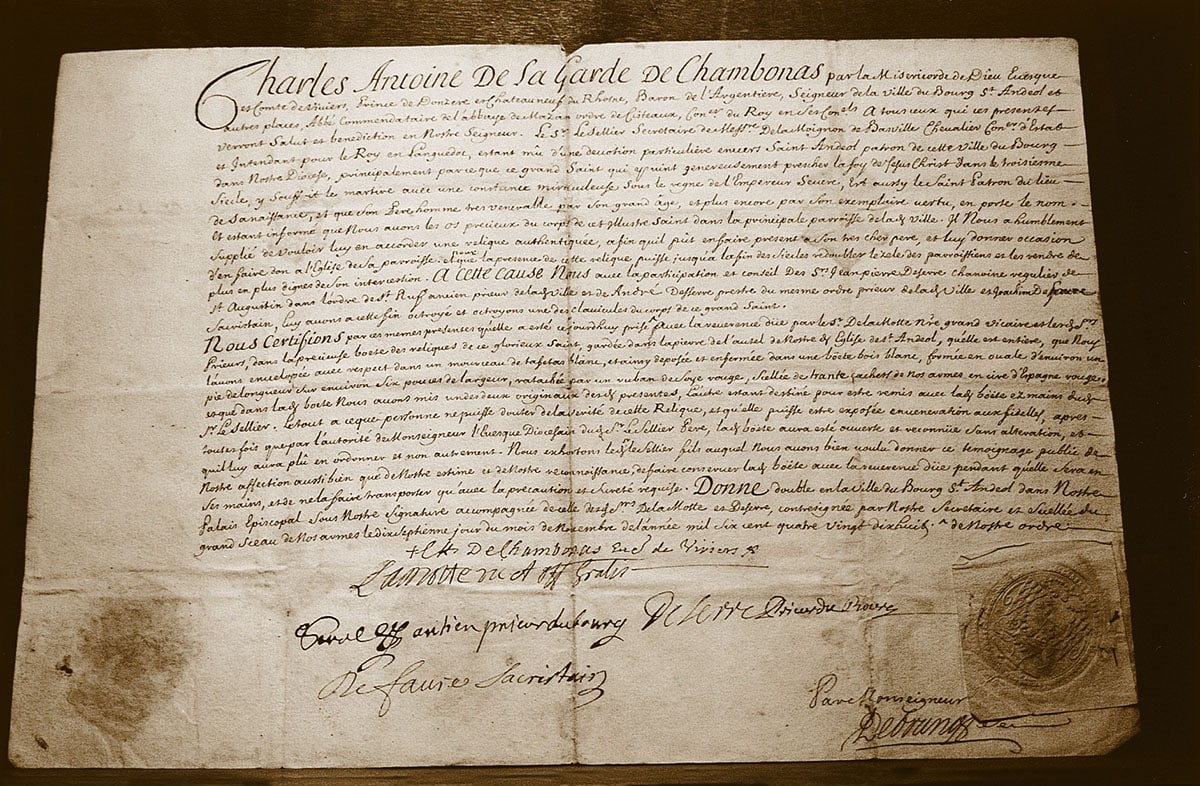 Charles Antoine De La Garde De Chambonas par la Misericorde de Dieu Evesque
et Comte de Viviers, Prince de Donzere et Chateauneuf du Rhosne, Baron de l'Argentiere, Seigneur de la Ville du Bourg St Andeol et
autres places, Abbé Commendataire de l'abbaye de Mazan ordre de Cisteaux, Coner du Roy en ses Conels A tous ceux qui ces presentes
verront Salut et benediction en Nostre Seigneur. Le Sr Le Sellier Secretaire de Messire Delamoignon de Basville Chevalier Coner d'Estat
et Intendant pour le Roy en Languedoc, estant mû d'une devotion particuliere envers Saint Andeol patron de cette Ville du Bourg
dans Nostre Diocese, principalement parce que ce grand Saint qui vint genereusement prescher la foy de Jesus Christ dans le troisiesme
Siecle, y Souffrit le martire avec une constance miraculeuse Sous le regne de l'Empereur Severe, Est aussy le Saint Patron du lieu
de Sa naissance, et que Son Pere homme tres venerable par Son grand âge, et plus encore par Son exemplaire vertu, en porte le nom.
Et estant informé que Nous avons les os precieux du corps de cet Illustre Saint dans la principale parroisse de lad Ville. Il Nous a humblement
Supplié de vouloir luy en accorder une relique authentique, afin quil pût en faire present a Son tres cher pere, et luy donner occasion
d'en faire don a l'Eglise de Sa parroisse. Et pour que la presence de cette relique puisse jusqu'a la fin des Siecles redoubler le zele des parroissiens et les rendre de
plus en plus dignes de Son intercession. A cette cause Nous avec la participation et conseil Des Srs Jean pierre Deserre chanoine regulier de
St Augustin dans l'ordre de St Ruf ancien prieur de lad Ville et de André Deserre prestre du mesme ordre prieur de lad Ville et Joachim De Faure
Sacristain, luy avons a cette fin octroyé et octroyons une des clavicules du corps de ce grand Saint.
Nous Certifions par ces mesmes presentes qu'elle a esté ce jourdhuy prise avec la reverence düe par le Sr De la Motte Nre grand Vicaire et les Srs
Prieurs, dans la precieuse boete des reliques de ce glorieux Saint, gardée dans la pierre de l'autel de Nostre Eglise de St Andeol, qu'elle est entiere, que Nous
l'avons envelopée avec respect dans un morceau de tafetas blanc, et ainsy deposée et enfermée dans une boëte bois blanc, formée en ovale d'environ un
pié de longueur sur environ Six pouces de largeur, ratachée par un ruban de Soye rouge, Scellée de trante cachets de Nos armes en cire d'Espagne rouge,
et que dans lad boete Nous avons mis un des deux originaux des presentes, l'autre estant destiné pour estre remis avec lad boëte ez mains dud
Sr Le Sellier. Le tout a ce que personne ne puisse douter de la verité de cette Relique, et qu'elle puisse estre exposée en veneration aux fidelles, apres
toutes fois que par l'autorité de Monseigneur l'Evesque Diocesain dud Sr Le Sellier Pere, lad boëte aura esté ouverte et reconnüe Sans alteration, et
quil luy aura plû en ordonner et non autrement. Nous exhortons led Sr Le Sellier fils auquel Nous avons bien voulu donner ce temoignage public de
Nostre affection aussi bien que de Nostre estime et de Nostre reconnoissance, de faire conserver lad boëte avec la reverence düe pendant quelle Sera en
Ses mains, et de ne la faire transporter qu'avec la précaution et Sureté requise. Donné double en la Ville du Bourg St Andeol dans Nostre
Palais Episcopal Sous Nostre Signature accompagnée de celle des Srs De la Motte et Deserre, contresignée par Nostre Secretaire et Scellée du
grand Sceau de Nos armes le dix Septienne jour du mois de Novembre de l'année mil Six cent quatre vingt dix huit. de Nostre ordre.
De Chambonas Ev de Viviers
Lamotte
antien prieur du bourg Deserre Prieur du Bourg
De faure Sacristain
Par Monseigneur